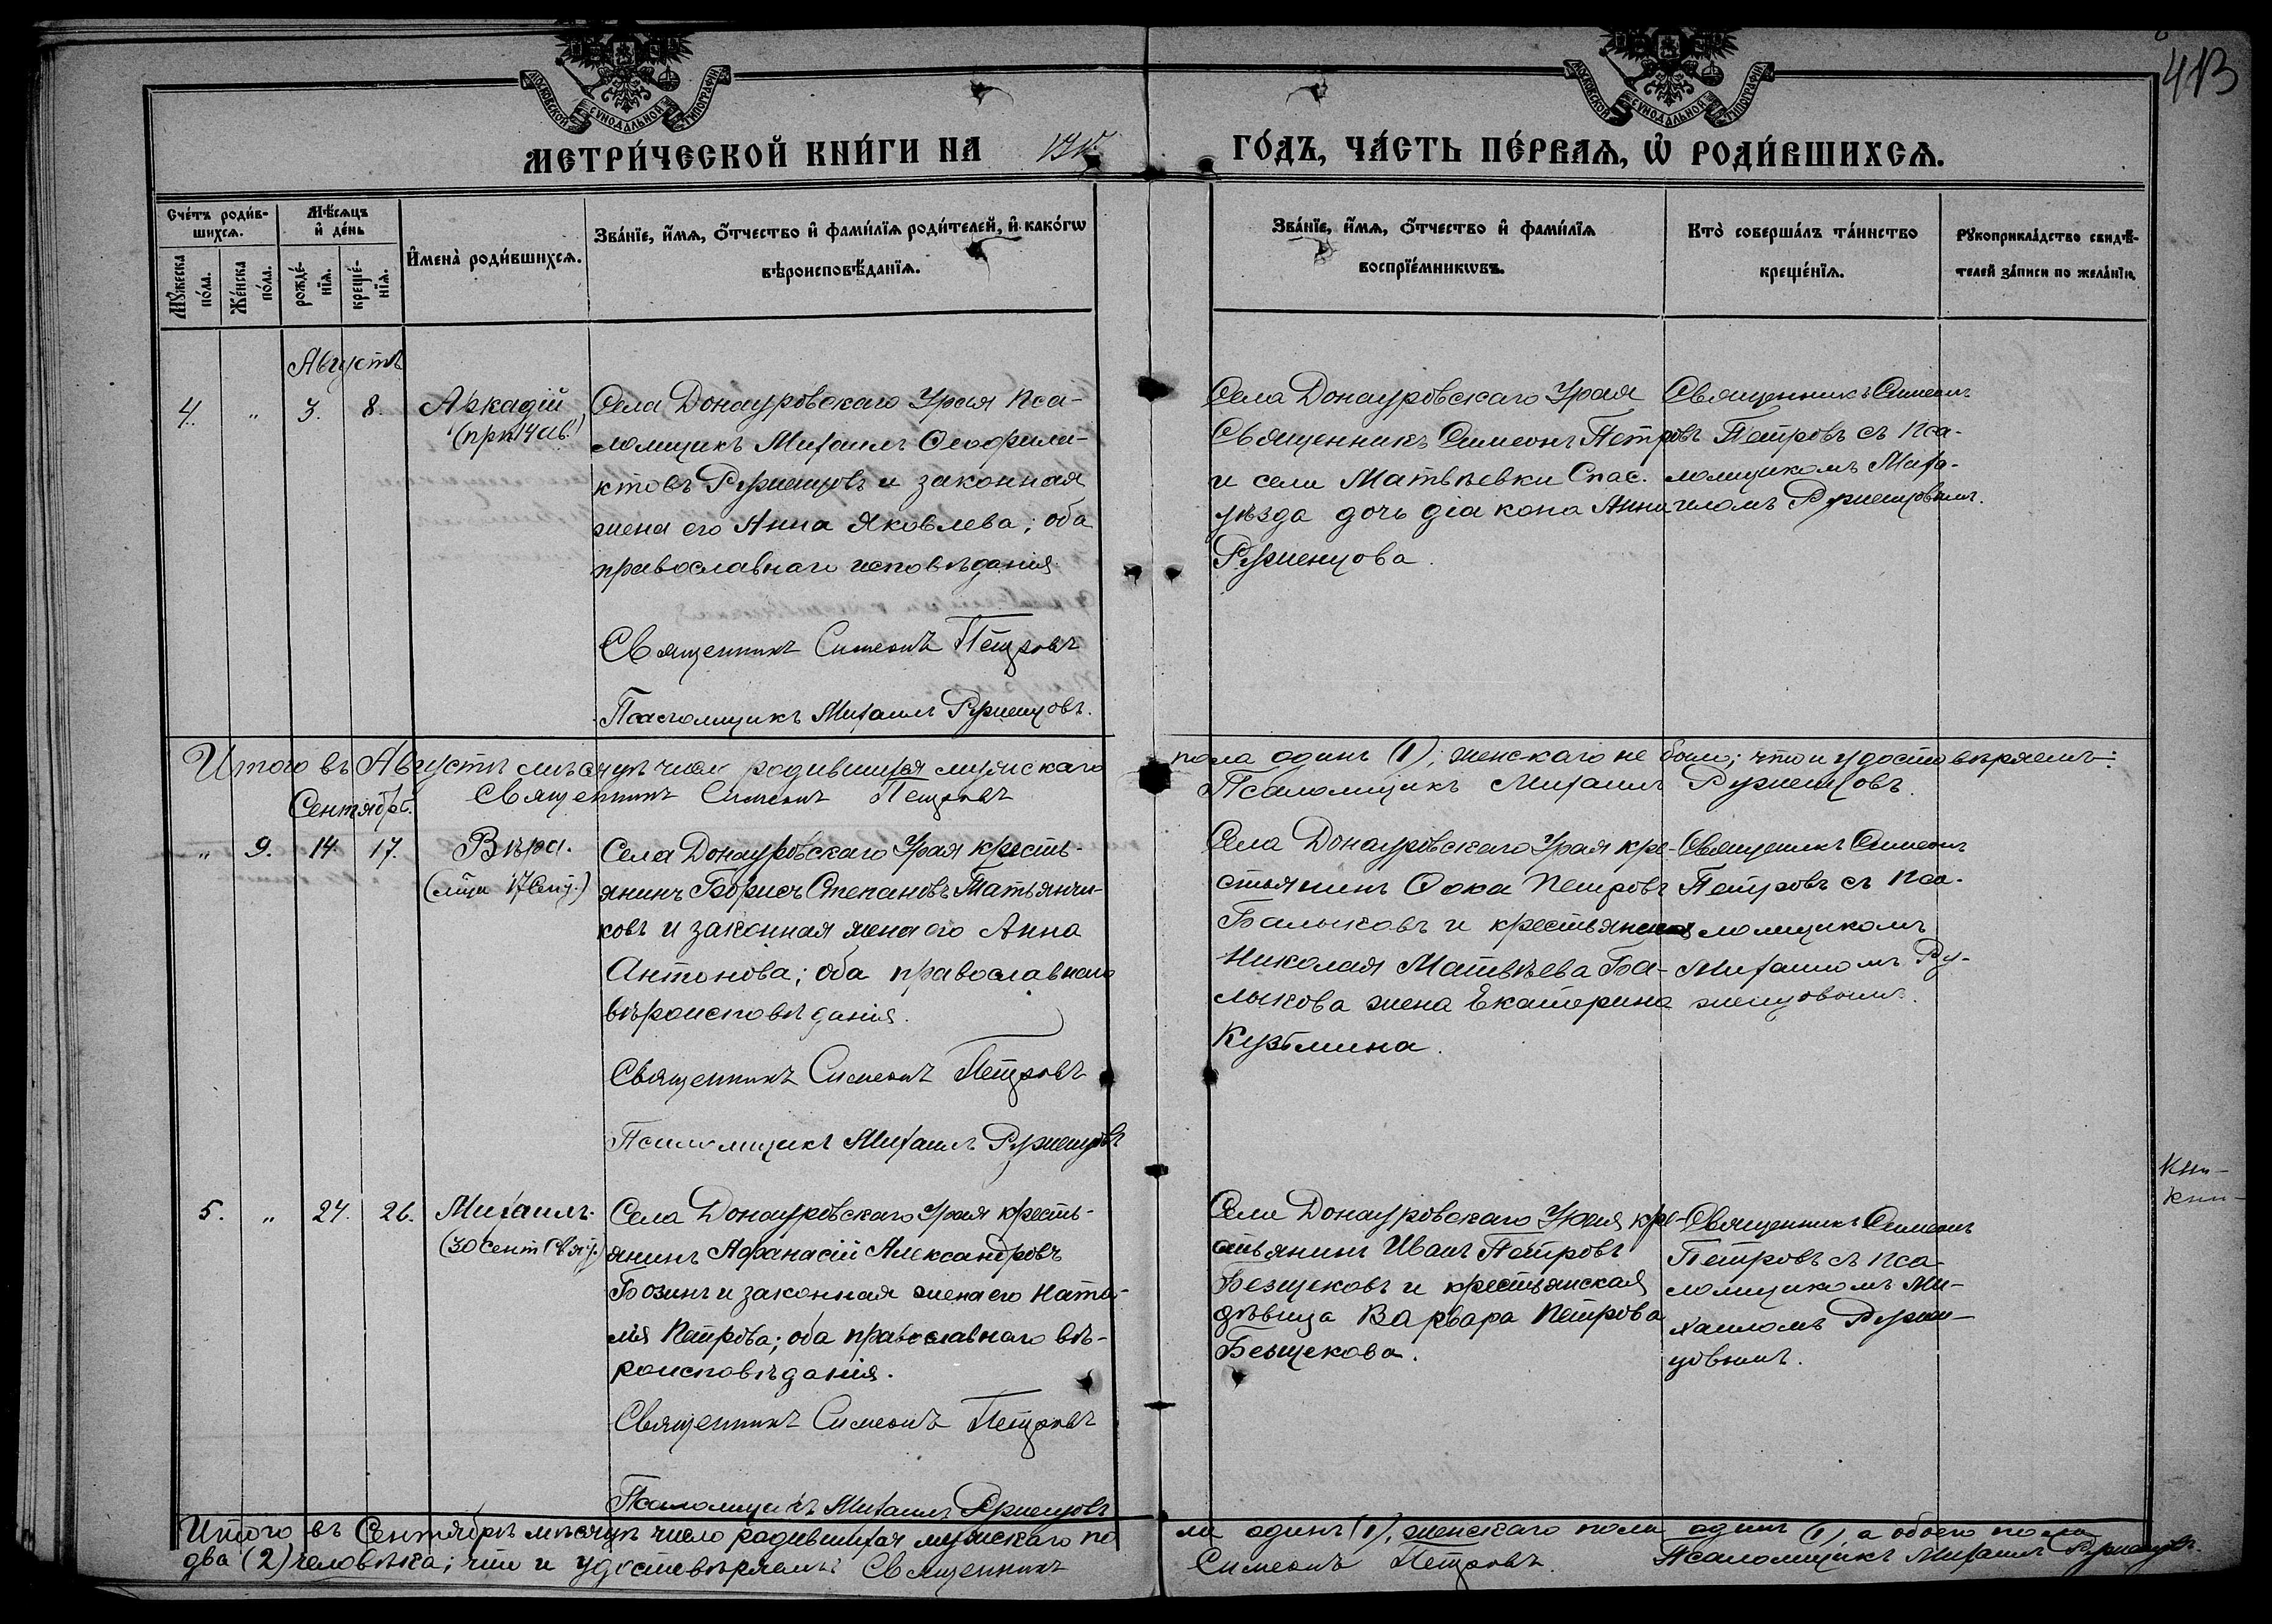 413
МОСКОВСКОЙ СѴНОДАЛЬНОЙ ТИПОГРАФІИ
МОСКОВСКОЙ СѴНОДАЛЬНОЙ ТИПОГРАФІИ
МЕТРИ́ЧЕСКОЙ КНИ́ГИ НА
ГО́ДЪ, ЧА́СТЬ ПЕ́РВАѦ, Ѡ҆ РОДИ́ВШИХСѦ.
Сче́тъ роди́в-
шихсѧ.
Мѣ́сѧцъ
и҆ де́нь
Мꙋ́жеска
по́ла.
Же́нска
по́ла.
рожде́-
нїѧ.
креще́-
нїѧ.
И҆мена̀ роди́вшихсѧ.
Зва́нїе, и҆́мѧ, ѻ҆́тчество и҆ фами́лїѧ роди́телей, и҆ како́гѡ
вѣроисповѣ́данїѧ.
Зва́нїе, и҆́мѧ, ѻ҆́тчество и҆ фами́лїѧ
воспрїе́мникѡвъ.
Кто̀ соверша́лъ та́инство
креще́нїѧ.
Рꙋкоприкла́дство свидѣ́-
телей за́писи по жела́нїю.
Августъ
4. " 3. 8.
Аркадій
Села Донауровскаго Урая пса-
ломщикъ Михаилъ Феофила-
ктовъ Руженцовъ и законная
жена его Анна Яковлева; оба
православнаго исповѣданія.
Священникъ Симеонъ Петровъ
Псаломщикъ Михаилъ Руженцовъ.
Села Донауровскаго Урая
Священникъ Симеонъ Петровъ
и села Матвѣевки Спас.
уѣзда дочь діакона Анна
Руженцова.
Священникъ Симеонъ
Петровъ съ пса-
ломщикомъ Миха-
иломъ Руженцовымъ.
Итого въ Августѣ мѣсяцѣ число родившихся мужскаго
пола одинъ (1), женскаго не было; что и удостовѣряемъ:
Священникъ Симеонъ Петровъ
Псаломщикъ Михаилъ Руженцовъ.
Сентябрь.
" 9. 14. 17.
Вѣра.
(17 Сент.)
Села Донауровскаго Урая кресть-
янинъ Борисъ Степановъ Матьянчи-
ковъ и законная жена его Анна
Антонова; оба православнаго
вѣроисповѣданія.
Священникъ Симеонъ Петровъ
Псаломщикъ Михаилъ Руженцовъ
Села Донауровскаго Урая кре-
стьянинъ Фока Петровъ
Балыковъ и крестьянина
Николая Матвѣева Ба-
лыкова жена Екатерина
Кузьмина.
Священникъ Симеонъ
Петровъ съ пса-
ломщикомъ
Михаиломъ Ру-
женцовымъ.
5. " 24. 26.
Михаилъ.
Села Донауровскаго Урая кресть-
янинъ Афанасій Александровъ
Бозинъ и законная жена его Ната-
лія Петрова; оба православнаго вѣ-
роисповѣданія.
Священникъ Симеонъ Петровъ
Псаломщикъ Михаилъ Руженцовъ
Села Донауровскаго Урая кре-
стьянинъ Иванъ Петровъ
Безщековъ и крестьянская
дѣвица Варвара Петрова
Безщекова.
Священникъ Симеонъ
Петровъ съ пса-
ломщикомъ Ми-
хаиломъ Ружен-
цовымъ.
Итого въ Сентябрѣ мѣсяцѣ число родившихся мужскаго по
ла одинъ (1), женскаго пола одинъ (1), а обоего пола
два (2) человѣка; что и удостовѣряемъ: Священникъ
Симеонъ Петровъ. Псаломщикъ Михаилъ Руженцовъ.